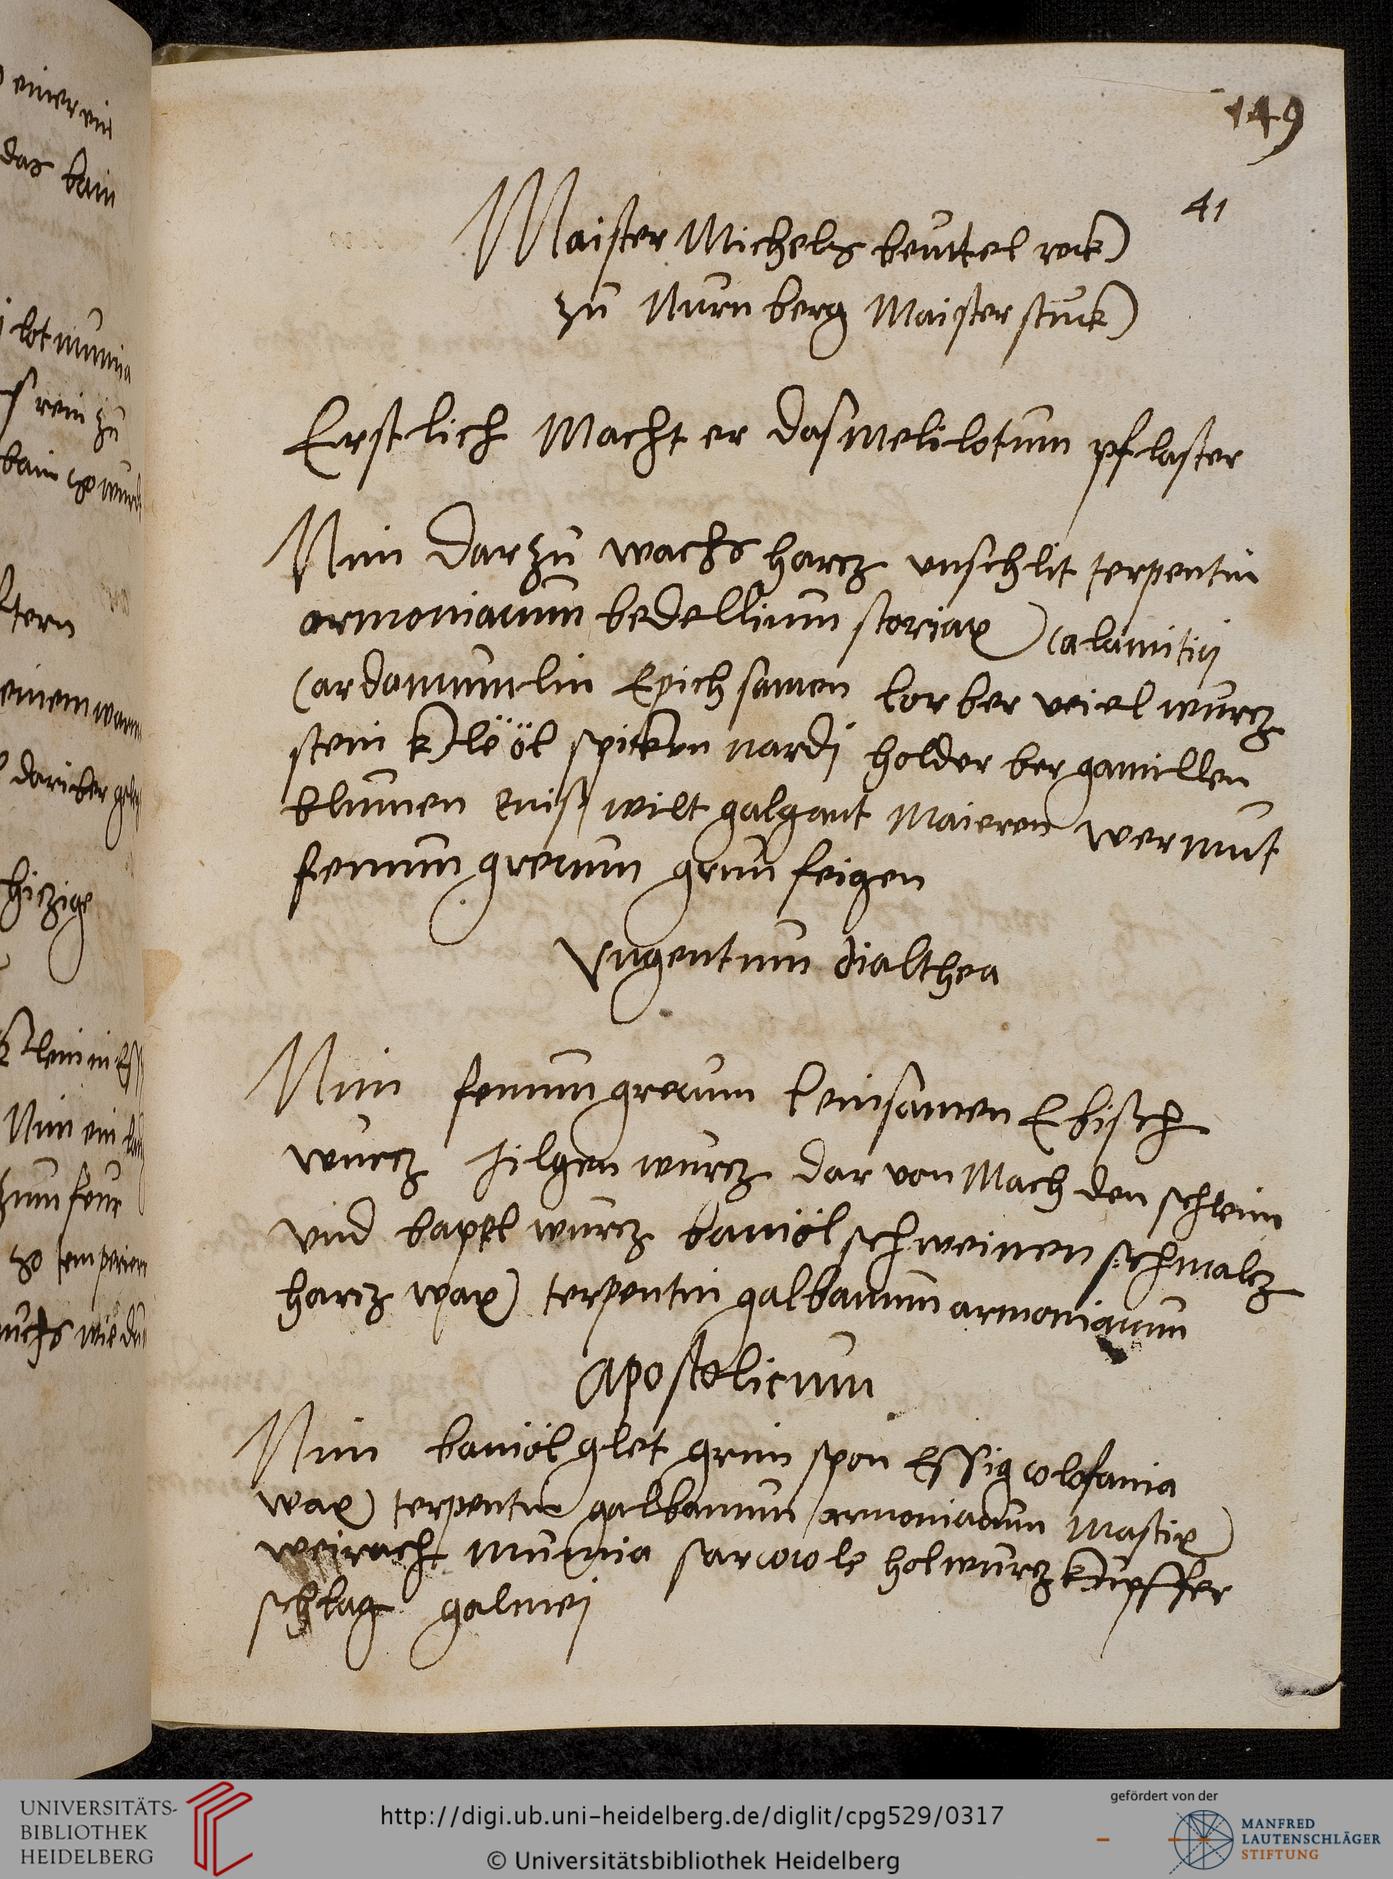 149
41
Maister Michels beuttel rock
zu Nurn berg Maister stuck
Erst lich Macht er das melilotum pflaster
Nim dar zu wachs harcz unschlit terpentin
armoniacum bedellium storiax Calamitij
Cardamumlin Epich samen lorber veiel wurcz
stein kle öl spicken nardj holder ber gamillen
blumen eniß wilt galgant Maieren wermut
fenum grecum grun feigen
Ungentum dialthea
Nim fenum grecum leinsamen Ebisch
wurcz jilgen wurcz dar von Mach den schleim
und bappel wurcz bamöl schweinen schmalcz
harcz wax terpentin galbanum armoniacum
Apostolicum
Nim bamöl glet grun spon Essig colofania
wax terpentin galbanum armoniacum Mastix
weirach mumia sarcocole holwurcz kupffer
schlag galmej
einer
das bain
lot mumia
rein zu
bain so
einem
dariber
hiczige
Nim ein
zum feur
so
wie
UNIVERSITÄTS-
BIBLIOTHEK
HEIDELBERG
http://digi.ub.uni-heidelberg.de/diglit/cpg529/0317
© Universitätsbibliothek Heidelberg
gefördert von der
MANFRED
LAUTENSCHLÄGER
STIFTUNG